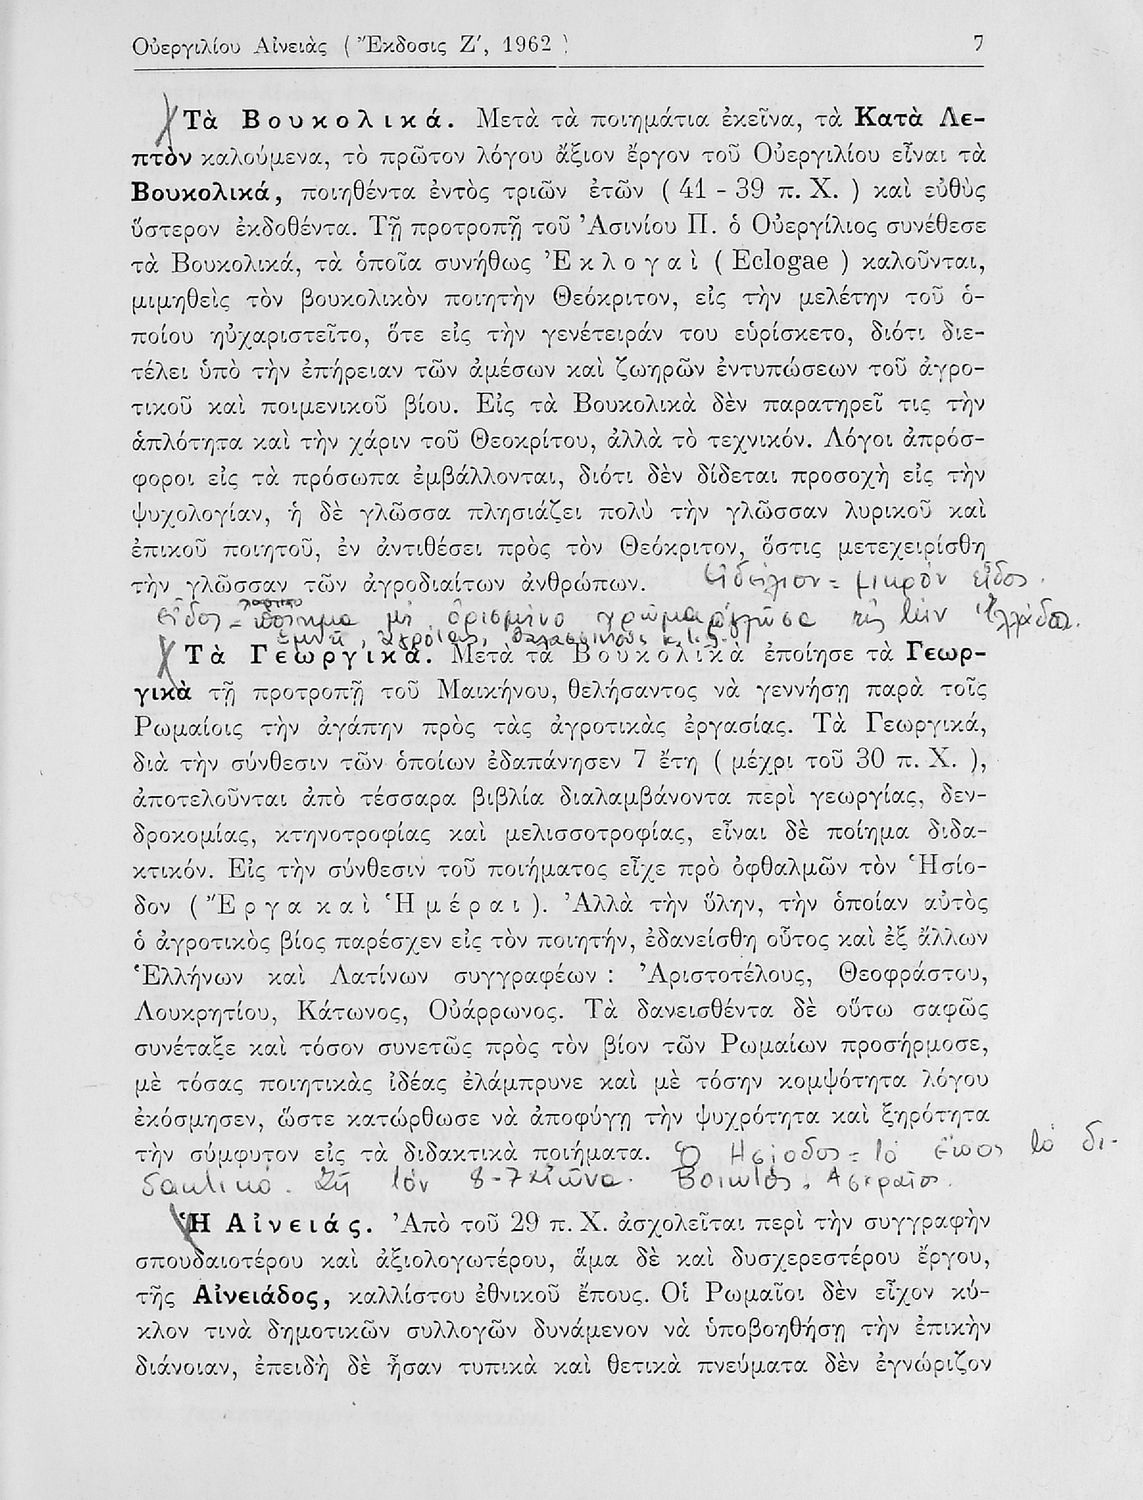 Οὐεργιλίου Αἰνειὰς ( Ἔκδοσις Ζ′, 1962 ) 7
Τὰ Βουκολικά. Μετὰ τὰ ποιημάτια ἐκεῖνα, τὰ Κατὰ Λε-
πτὸν καλούμενα, τὸ πρῶτον λόγου ἄξιον ἔργον τοῦ Οὐεργιλίου εἶναι τὰ
Βουκολικά, ποιηθέντα ἐντὸς τριῶν ἐτῶν ( 41 - 39 π. Χ. ) καὶ εὐθὺς
ὕστερον ἐκδοθέντα. Τῇ προτροπῇ τοῦ Ἀσινίου Π. ὁ Οὐεργίλιος συνέθεσε
τὰ Βουκολικά, τὰ ὁποῖα συνήθως Ἐκλογαὶ ( Eclogae ) καλοῦνται,
μιμηθεὶς τὸν βουκολικὸν ποιητὴν Θεόκριτον, εἰς τὴν μελέτην τοῦ ὁ-
ποίου ηὐχαριστεῖτο, ὅτε εἰς τὴν γενέτειράν του εὑρίσκετο, διότι διε-
τέλει ὑπὸ τὴν ἐπήρειαν τῶν ἀμέσων καὶ ζωηρῶν ἐντυπώσεων τοῦ ἀγρο-
τικοῦ καὶ ποιμενικοῦ βίου. Εἰς τὰ Βουκολικὰ δὲν παρατηρεῖ τις τὴν
ἁπλότητα καὶ τὴν χάριν τοῦ Θεοκρίτου, ἀλλὰ τὸ τεχνικόν. Λόγοι ἀπρόσ-
φοροι εἰς τὰ πρόσωπα ἐμβάλλονται, διότι δὲν δίδεται προσοχὴ εἰς τὴν
ψυχολογίαν, ἡ δὲ γλῶσσα πλησιάζει πολὺ τὴν γλῶσσαν λυρικοῦ καὶ
ἐπικοῦ ποιητοῦ, ἐν ἀντιθέσει πρὸς τὸν Θεόκριτον, ὅστις μετεχειρίσθη
τὴν γλῶσσαν τῶν ἀγροδιαίτων ἀνθρώπων. Εἰδύλιον = μικρόν εἶδος.
εἶδος = ποίημα μὲ ὁρισμένο
Τὰ Γεωργικά. Μετὰ τὰ Βουκολικὰ ἐποίησε τὰ Γεωρ-
γικὰ τῇ προτροπῇ τοῦ Μαικήνου, θελήσαντος νὰ γεννήσῃ παρὰ τοῖς
Ρωμαίοις τὴν ἀγάπην πρὸς τὰς ἀγροτικὰς ἐργασίας. Τὰ Γεωργικά,
διὰ τὴν σύνθεσιν τῶν ὁποίων ἐδαπάνησεν 7 ἔτη ( μέχρι τοῦ 30 π. Χ. ),
ἀποτελοῦνται ἀπὸ τέσσαρα βιβλία διαλαμβάνοντα περὶ γεωργίας, δεν-
δροκομίας, κτηνοτροφίας καὶ μελισσοτροφίας, εἶναι δὲ ποίημα διδα-
κτικόν. Εἰς τὴν σύνθεσιν τοῦ ποιήματος εἶχε πρὸ ὀφθαλμῶν τὸν Ἡσίο-
δον ( Ἔργα καὶ Ἡμέραι ). Ἀλλὰ τὴν ὕλην, τὴν ὁποίαν αὐτὸς
ὁ ἀγροτικὸς βίος παρέσχεν εἰς τὸν ποιητήν, ἐδανείσθη οὗτος καὶ ἐξ ἄλλων
Ἑλλήνων καὶ Λατίνων συγγραφέων : Ἀριστοτέλους, Θεοφράστου,
Λουκρητίου, Κάτωνος, Οὐάρρωνος. Τὰ δανεισθέντα δὲ οὕτω σαφῶς
συνέταξε καὶ τόσον συνετῶς πρὸς τὸν βίον τῶν Ρωμαίων προσήρμοσε,
μὲ τόσας ποιητικὰς ἰδέας ἐλάμπρυνε καὶ μὲ τόσην κομψότητα λόγου
ἐκόσμησεν, ὥστε κατώρθωσε νὰ ἀποφύγῃ τὴν ψυχρότητα καὶ ξηρότητα
τὴν σύμφυτον εἰς τὰ διδακτικὰ ποιήματα. Ὁ Ἡσίοδος = τὸ ἔπος τὸ δι-
δακτικό. Ζῇ τὸν 8-7 αἰῶνα. Βοιωτός, Ἀσκραῖος.
Ἡ Αἰνειάς. Ἀπὸ τοῦ 29 π. Χ. ἀσχολεῖται περὶ τὴν συγγραφὴν
σπουδαιοτέρου καὶ ἀξιολογωτέρου, ἅμα δὲ καὶ δυσχερεστέρου ἔργου,
τῆς Αἰνειάδος, καλλίστου ἐθνικοῦ ἔπους. Οἱ Ρωμαῖοι δὲν εἶχον κύ-
κλον τινὰ δημοτικῶν συλλογῶν δυνάμενον νὰ ὑποβοηθήσῃ τὴν ἐπικὴν
διάνοιαν, ἐπειδὴ δὲ ἦσαν τυπικὰ καὶ θετικὰ πνεύματα δὲν ἐγνώριζον